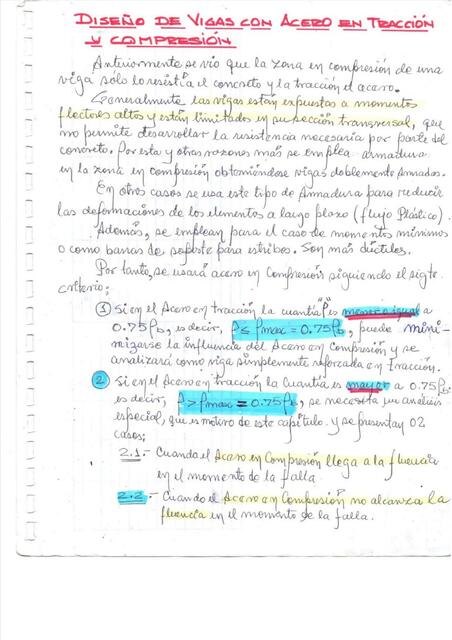 DISEÑO DE VIGAS CON ACERO EN TRACCIÓN
Y COMPRESIÓN
Anteriormente se vio que la zona en compresión de una
viga solo lo resistía el concreto y la tracción el acero.
Generalmente las vigas están expuestas a momentos
flectores altos y están limitados en su sección transversal, que
no permite desarrollar la resistencia necesaria por parte del
concreto. Por esta y otras razones más se emplea armadura
en la zona en compresión obteniéndose vigas doblemente Armadas.
En otros casos se usa este tipo de Armadura para reducir
las deformaciones de los elementos a largo plazo (flujo Plástico).
Además, se emplean para el caso de momentos mínimos
o como barras de soporte para estribos. Son más dúctiles.
Por tanto, se usará acero en Compresión siguiendo el sigte
criterio;
① Si en el Acero en tracción la cuantía "ρ" es menor o igual a
0.75ρb, es decir, ρ ≤ ρmax = 0.75ρb, puede mini-
mizarse la influencia del Acero en Compresión y se
analizará como viga simplemente reforzada en tracción.
② Si en el Acero en tracción la Cuantía es mayor a 0.75ρb
es decir, ρ > ρmax = 0.75ρb, se necesita un análisis
especial, que es motivo de este capítulo. y se presentan 02
casos;
2.1.- Cuando el Acero en Compresión llega a la fluencia
en el momento de la falla.
2.2.- Cuando el Acero en Compresión no alcanza la
fluencia en el momento de la falla.